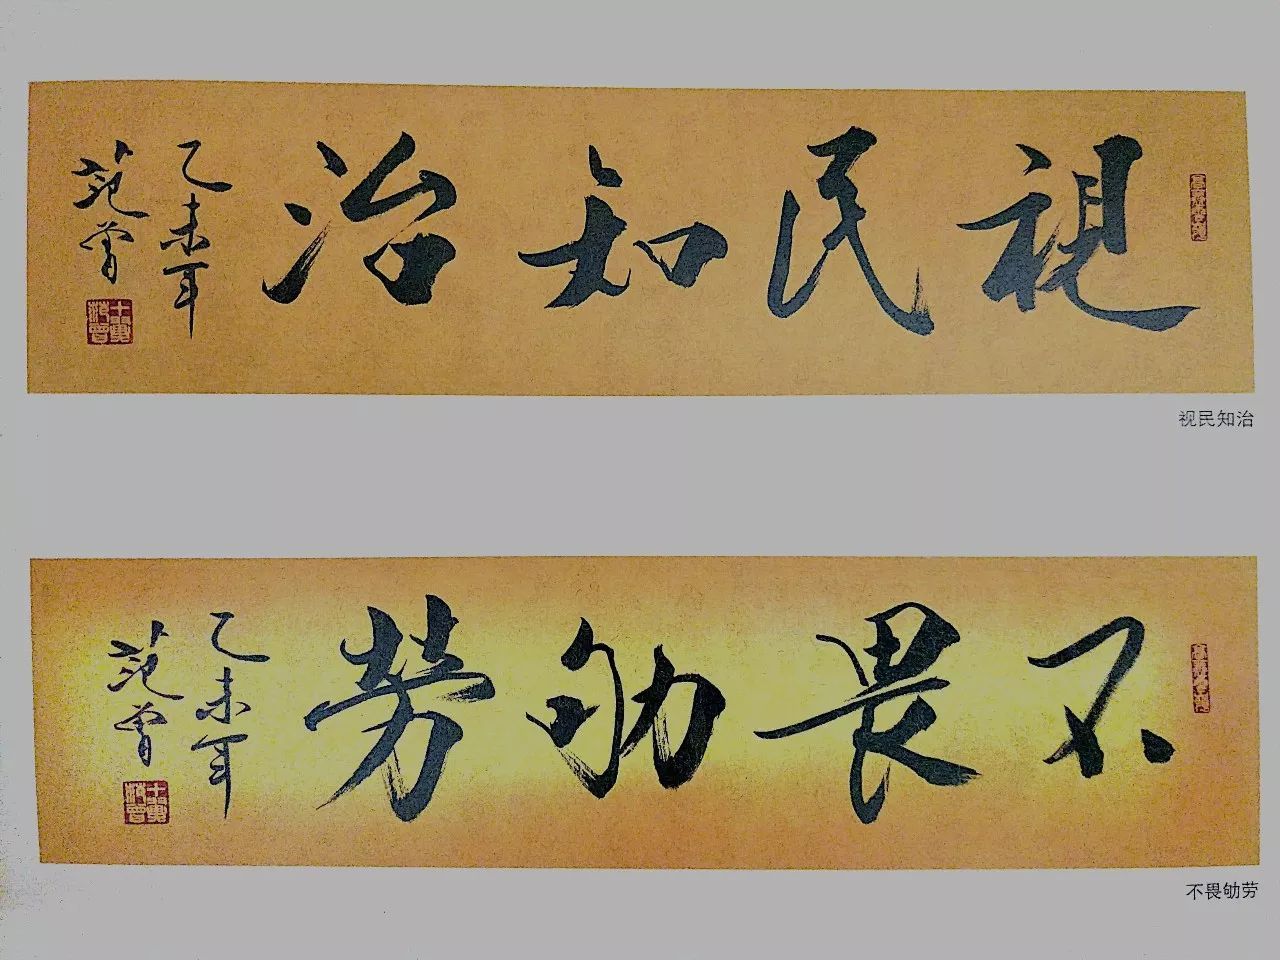 視民知治
乙未年
范曾
视民知治
不畏劬勞
乙未年
范曾
不畏劬劳